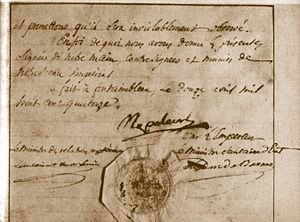 et promettons qu'il sera inviolablement observé.
En foi de quoi nous avons donné
signées de notre main, contresignées et munies de
notre sceau impérial
fait à fontainebleau le douze avril mil
huit cent quatorze
Napoleon
Par l'Empereur
Le Ministre des relations
Le Ministre Secrétaire d'Etat